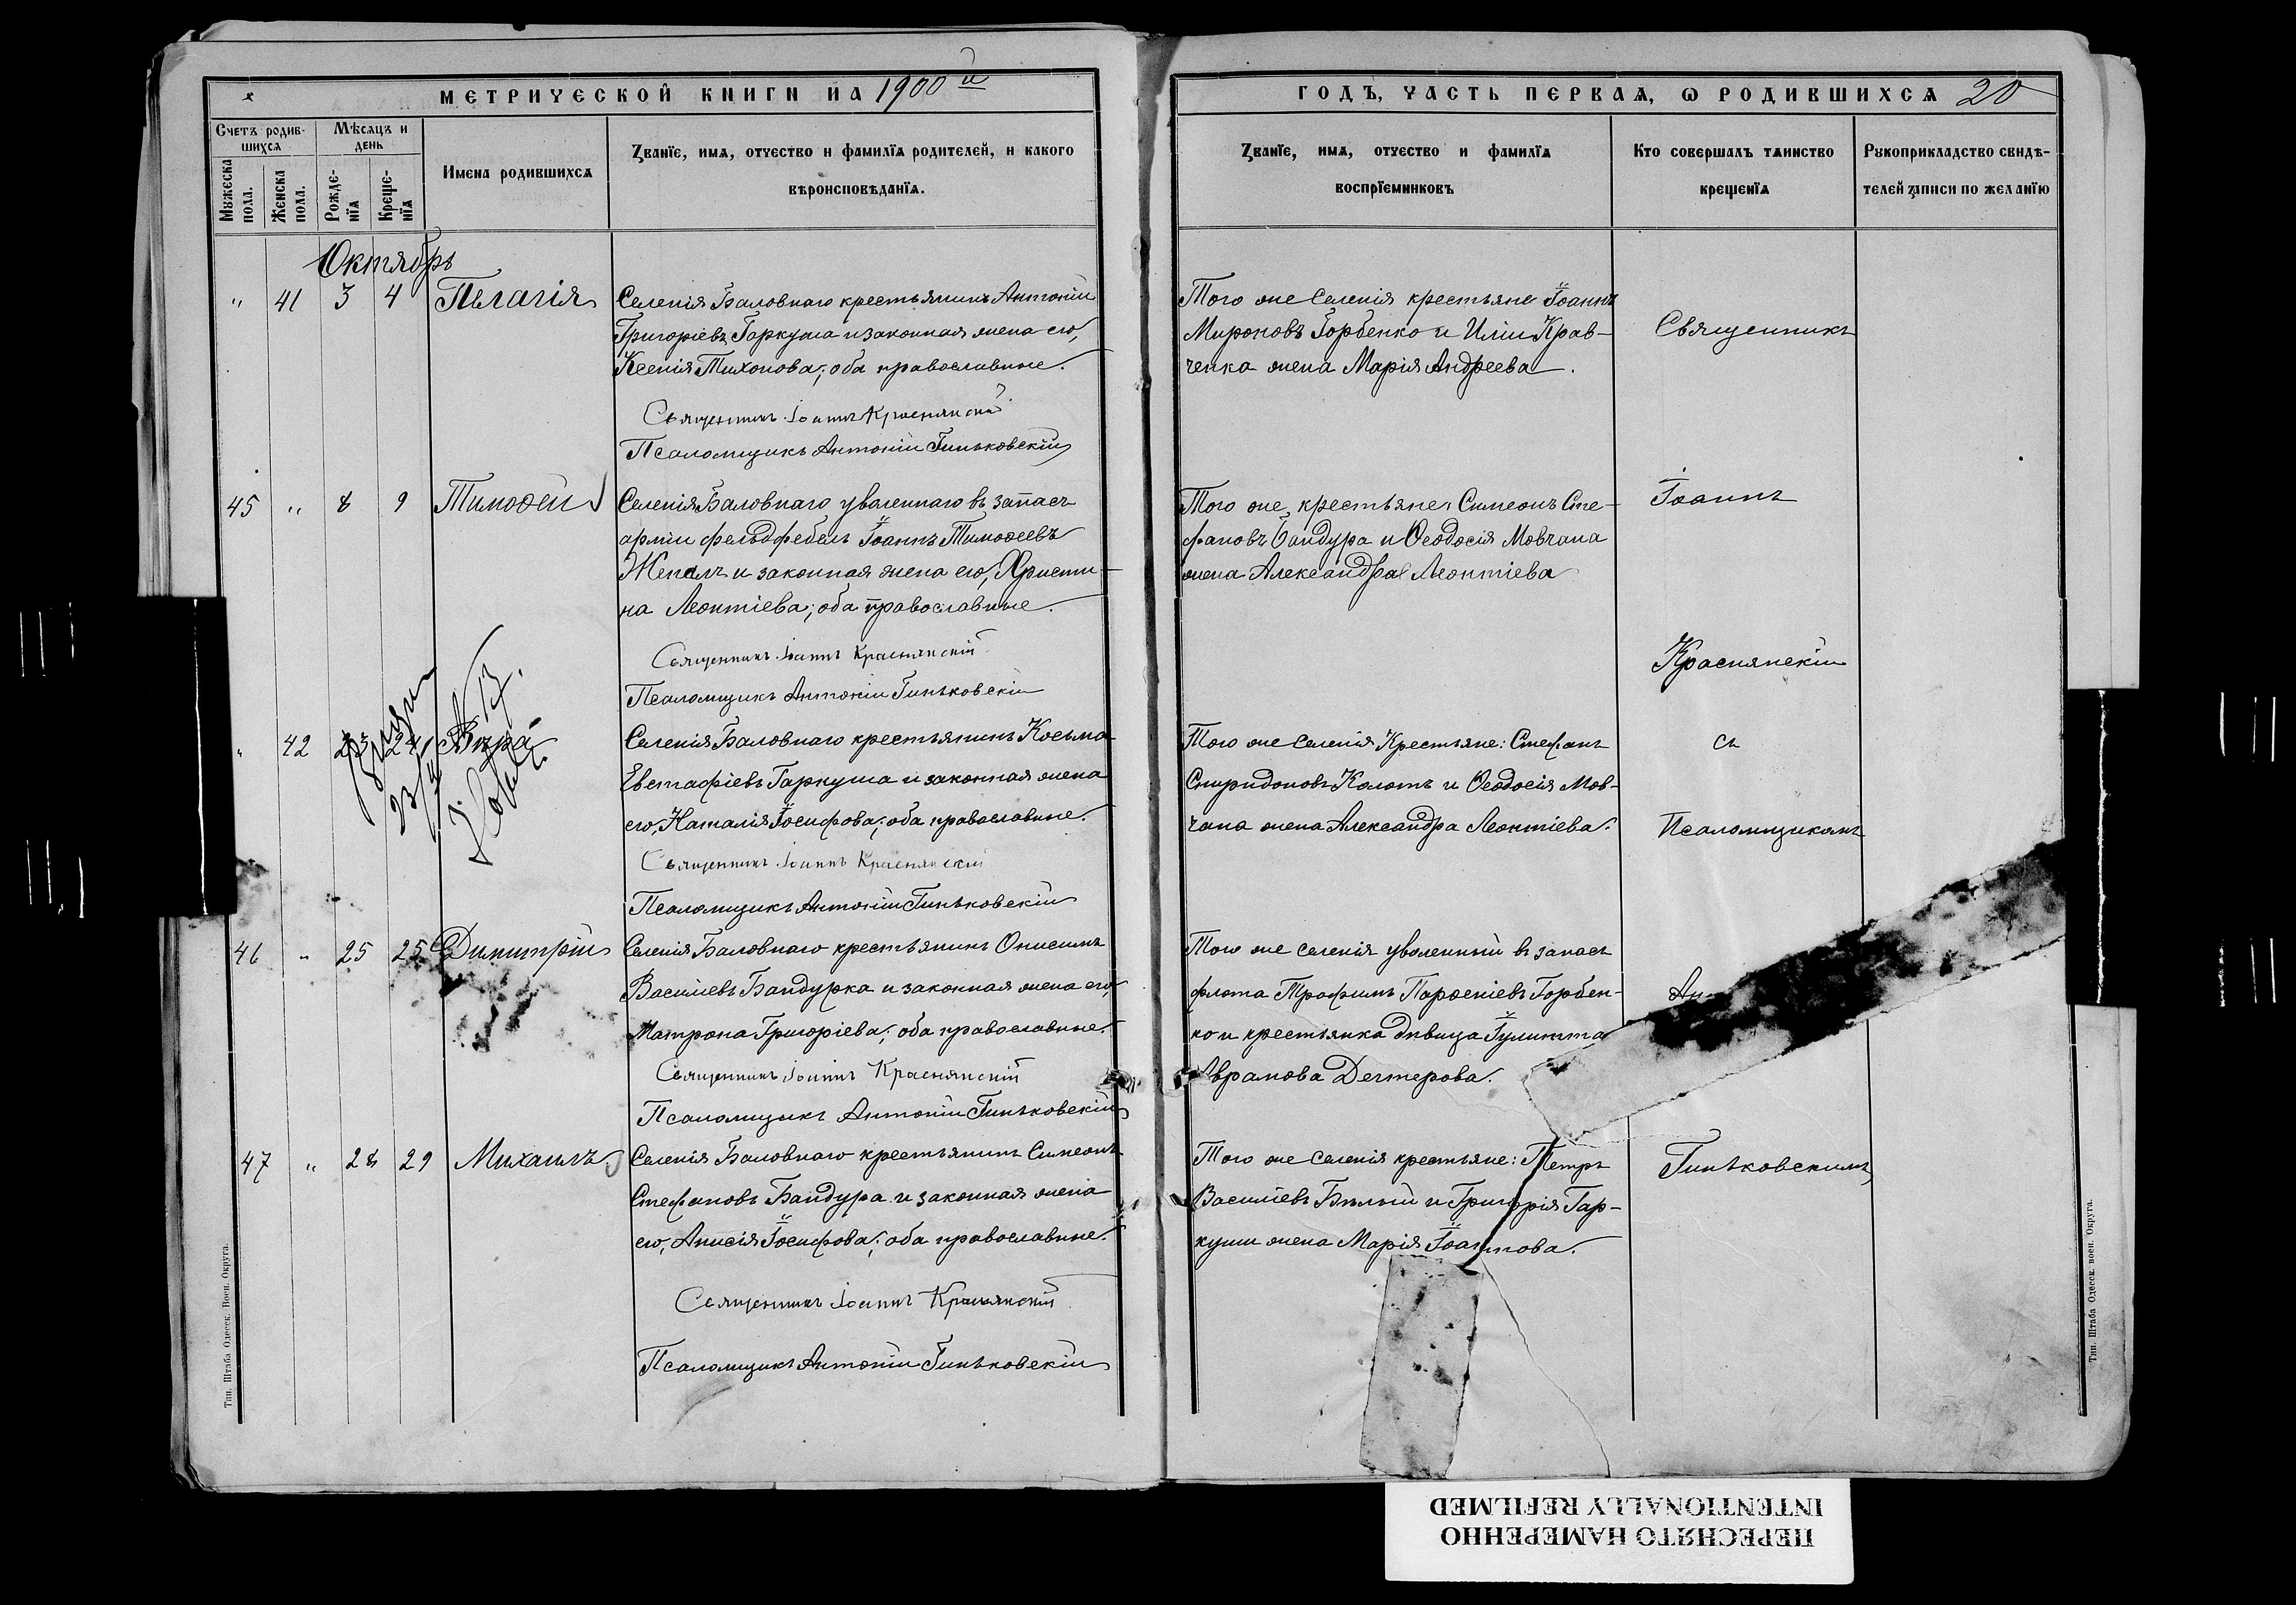 МЕТРИЧЕСКОЙ КНИГИ НА 1900й
Счетъ родив-
шихся
Мѣсяцъ и
день
Мужеска
пола.
Женска
пола.
Рожде-
нїя
Креще-
нїя
Имена родившихся
Званїе, имя, отчество и фамилїя родителей, и какого
вѣроисповѣданїя.
Октябрь
" 41 3 4 Пелагія
Селенія Баловнаго крестьянинъ Антоній
Григоріевъ Гаркуша и законная жена его,
Ксенія Тихонова; оба православные.
Священникъ Іоаннъ Краснянскій
Псаломщикъ Антоній Гиньковскій
45 " 8 9 Тимоѳей
Селенія Баловнаго уволеннаго въ запасъ
арміи фельдфебель Іоаннъ Тимоѳеевъ
и законная жена его, Христи-
на Леонтіева; оба православные.
Священникъ Іоаннъ Краснянскій
Псаломщикъ Антоній Гиньковскій
" 42 23 24 Вѣра
Селенія Баловнаго крестьянинъ Косьма
Евстафіевъ Гаркуша и законная жена
его, Наталія Іосифова; оба православные.
Священникъ Іоаннъ Краснянскій
Псаломщикъ Антоній Гиньковскій
46 " 25 25 Димитрій
Селенія Баловнаго крестьянинъ Онисимъ
Василіевъ Бандурка и законная жена его,
Матрона Григоріева; оба православные.
Священникъ Іоаннъ Краснянскій
Псаломщикъ Антоній Гиньковскій
47 " 28 29 Михаилъ
Селенія Баловнаго крестьянинъ Симеонъ
Стефановъ Бандура и законная жена
его, Анисія Іосифова; оба православные.
Священникъ Іоаннъ Краснянскій
Псаломщикъ Антоній Гиньковскій
Тип. Штаба Одесск. Воен. Округа.
ГОДЪ, ЧАСТЬ ПЕРВАЯ, Ѡ РОДИВШИХСЯ 20
Званїе, имя, отчество и фамилїя
воспрїемниковъ
Кто совершалъ таинство
крещенїя
Рукоприкладство свидѣ-
телей записи по желанїю
Того же селенія крестьяне Іоаннъ
Мироновъ Горбенко и Иліи Крав-
ченка жена Марія Андреева.
Того же, крестьяне: Симеонъ Сте-
фановъ Бандура и Ѳеодосія Мовчана
жена Александра Леонтіева
Того же селенія Крестьяне: Стефанъ
Спиридоновъ Колотъ и Ѳеодосія Мов-
чана жена Александра Леонтіева.
Того же селенія уволенный въ запасъ
флота Трофимъ Парѳеніевъ Горбен-
ко и крестьянка дѣвица Іулитта
Аврамова Дегтерова.
Того же селенія крестьяне: Петръ
Василіевъ Бѣлый и Григорія Гар-
куши жена Марія Іоаннова.
Священникъ
Іоаннъ
Краснянскій
съ
Псаломщикомъ
Ан
Гиньковскимъ
Тип. Штаба Одесск. воен. Округа.
ПЕРЕСНЯТО НАМЕРЕННО
INTENTIONALLY REFILMED